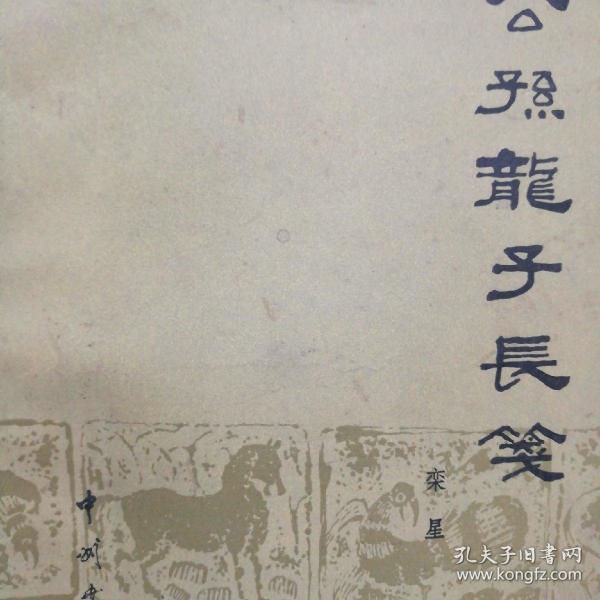 公孫龍子長箋
栾星
中州
孔夫子旧书网
www.kongfz.com